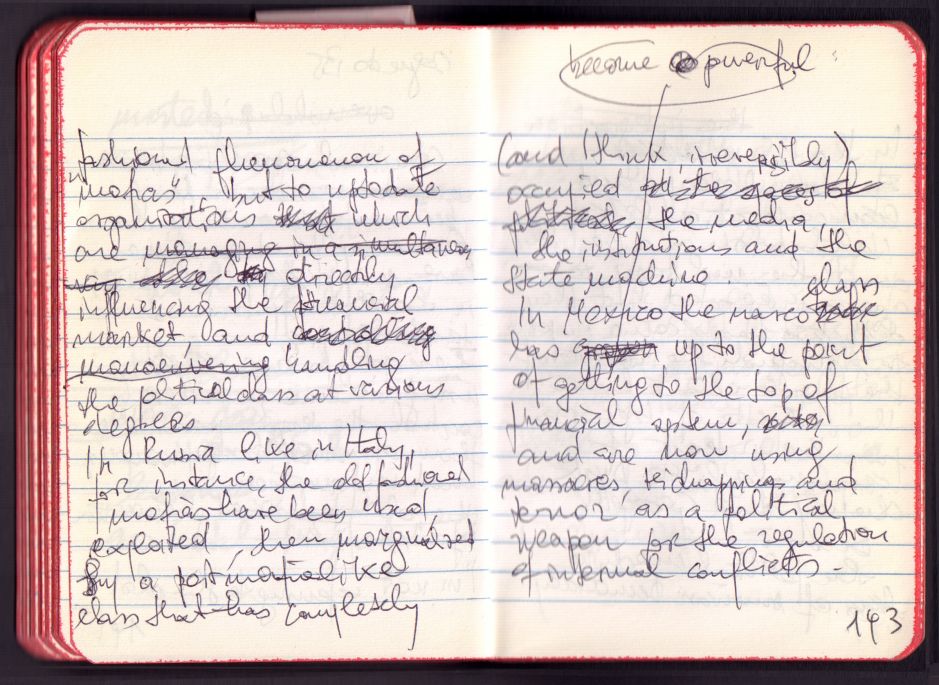 fashioned phenomenon of
"mafias" but to uptodate
organisations which
are managing in a simultaneous
way directly
influencing the financial
market, and controlling
manoeuvering handling
the political class at various
degrees.
In Russia like in Italy,
for instance, the old fashioned
mafias have been used,
exploited, then marginalized
by a postmafialiked
class that has completely
become so powerful
(and I think irreversibly)
occupied
the media,
the institutions and the
State machine.
In Mexico the narco class
has up to the point
of getting to the top of
financial system,
and are now using
massacres, kidnapping and
terror as a political
weapon for the regulation
of internal conflicts -
143